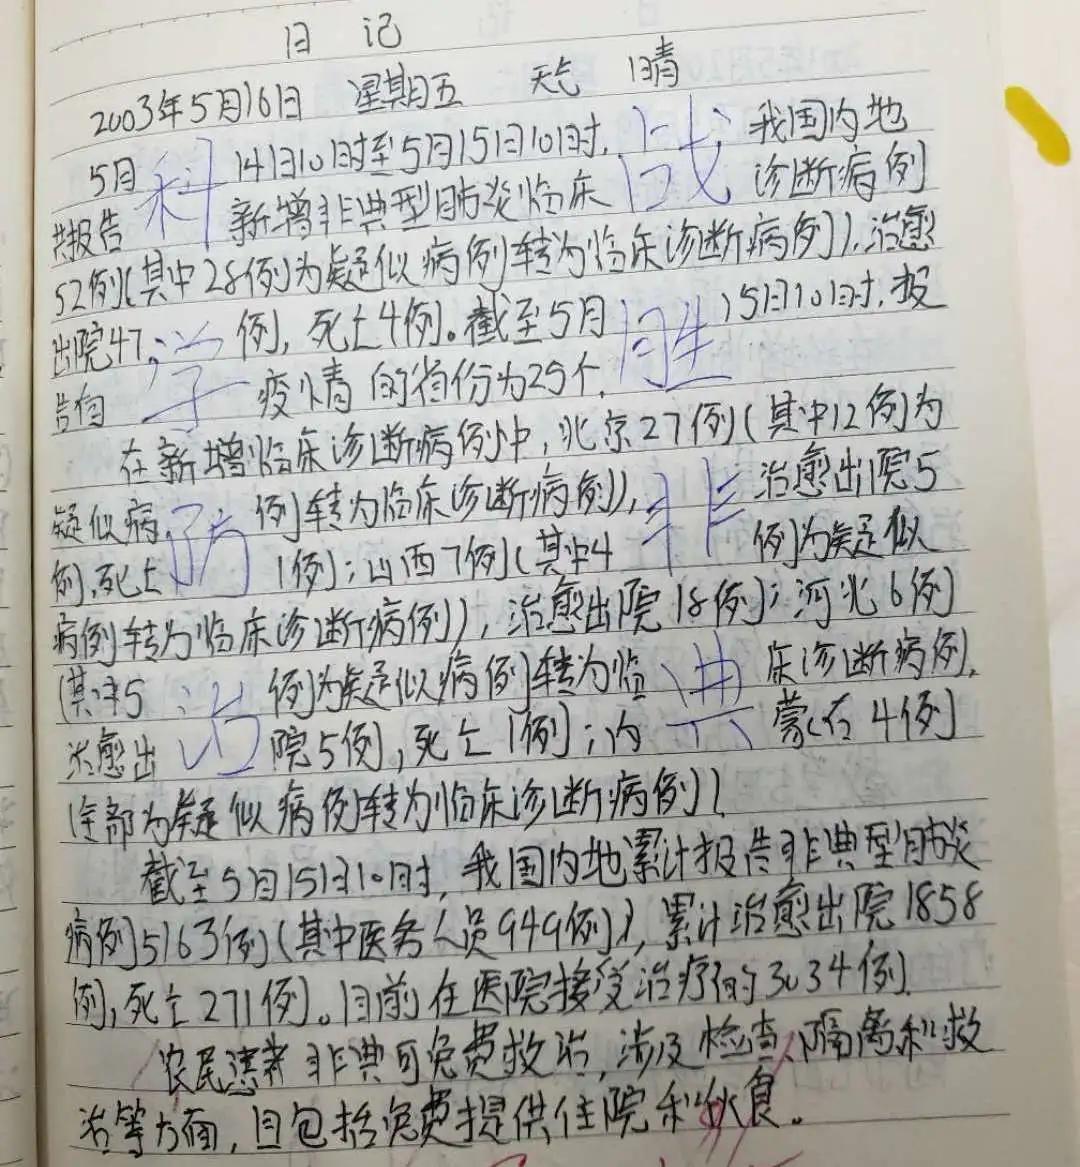 日 记
2003年5月16日 星期五 天气 晴
5月 14日10时至5月15日10时, 我国内地
共报告 新增非典型肺炎临床 诊断病例
52例(其中28例为疑似病例转为临床诊断病例),治愈
出院47 例,死亡4例。截至5月 15日10时,报
告有 疫情的省份为25个.
在新增临床诊断病例中,北京27例(其中12例为
疑似病 例转为临床诊断病例), 治愈出院5
例,死亡 1例;山西7例(其中4 例为疑似
病例转为临床诊断病例),治愈出院18例;河北6例
(其中5 例为疑似病例转为临 床诊断病例,
治愈出 院5例,死亡1例;内 蒙古4例
(全部为疑似病例转为临床诊断病例)
截至5月15日10时,我国内地累计报告非典型肺炎
病例5163例(其中医务人员949例),累计治愈出院1858
例,死亡271例。目前在医院接受治疗的3034例.
农民患者非典可免费救治,涉及检查、隔离和救
治等方面,且包括免费提供住院和伙食。
科学防治
战胜非典